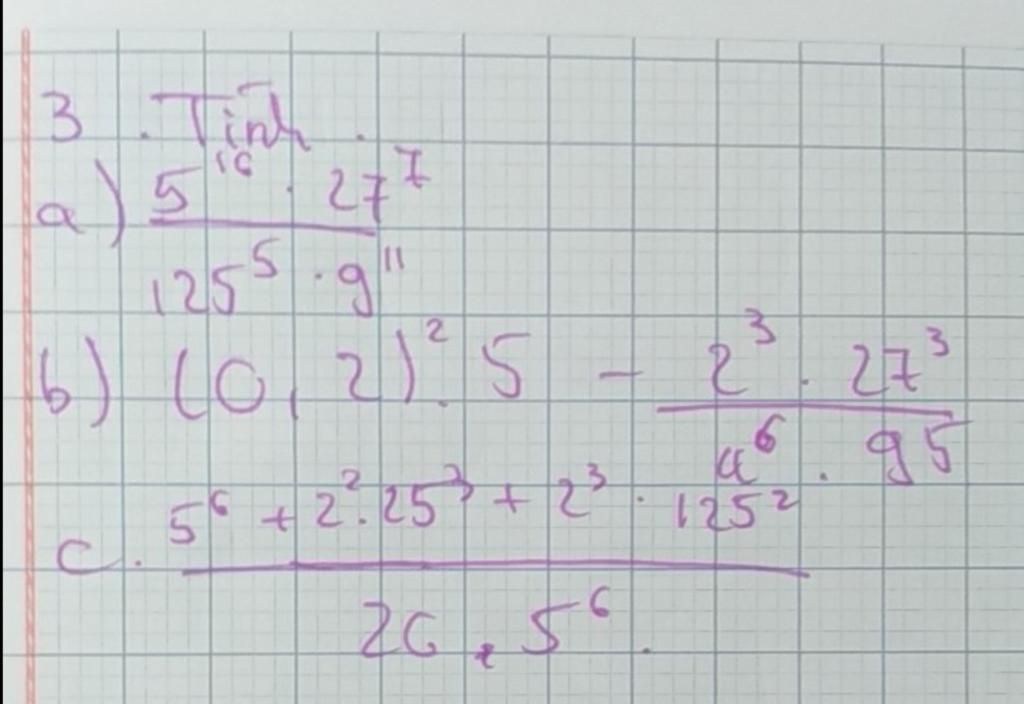 3. Tính.
a) \frac{5^{16} . 27^7}{125^5 . 9^{11}}
b) (0,2)^2 . 5 - \frac{2^3 . 27^3}{4^6 . 9^5}
c. \frac{5^6 + 2^2 . 25^3 + 2^3 . 125^2}{26 . 5^6}.